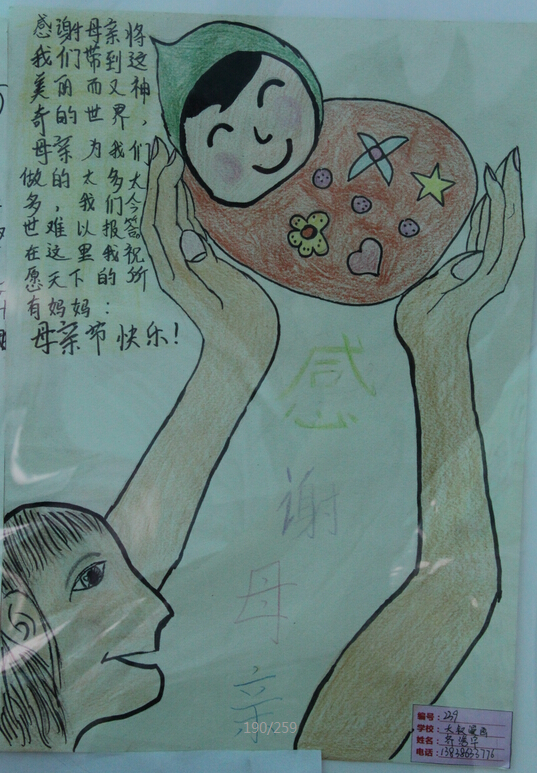 感谢母亲将
我们带到这
美丽而又神
奇的世界，
母亲为我们
做的太多太
多，我们今
世难以报答
在这里我祝
愿天下的所
有妈妈：
母亲节快乐！
感
谢
母
亲
190/259
编号：239
学校：
姓名：
电话：